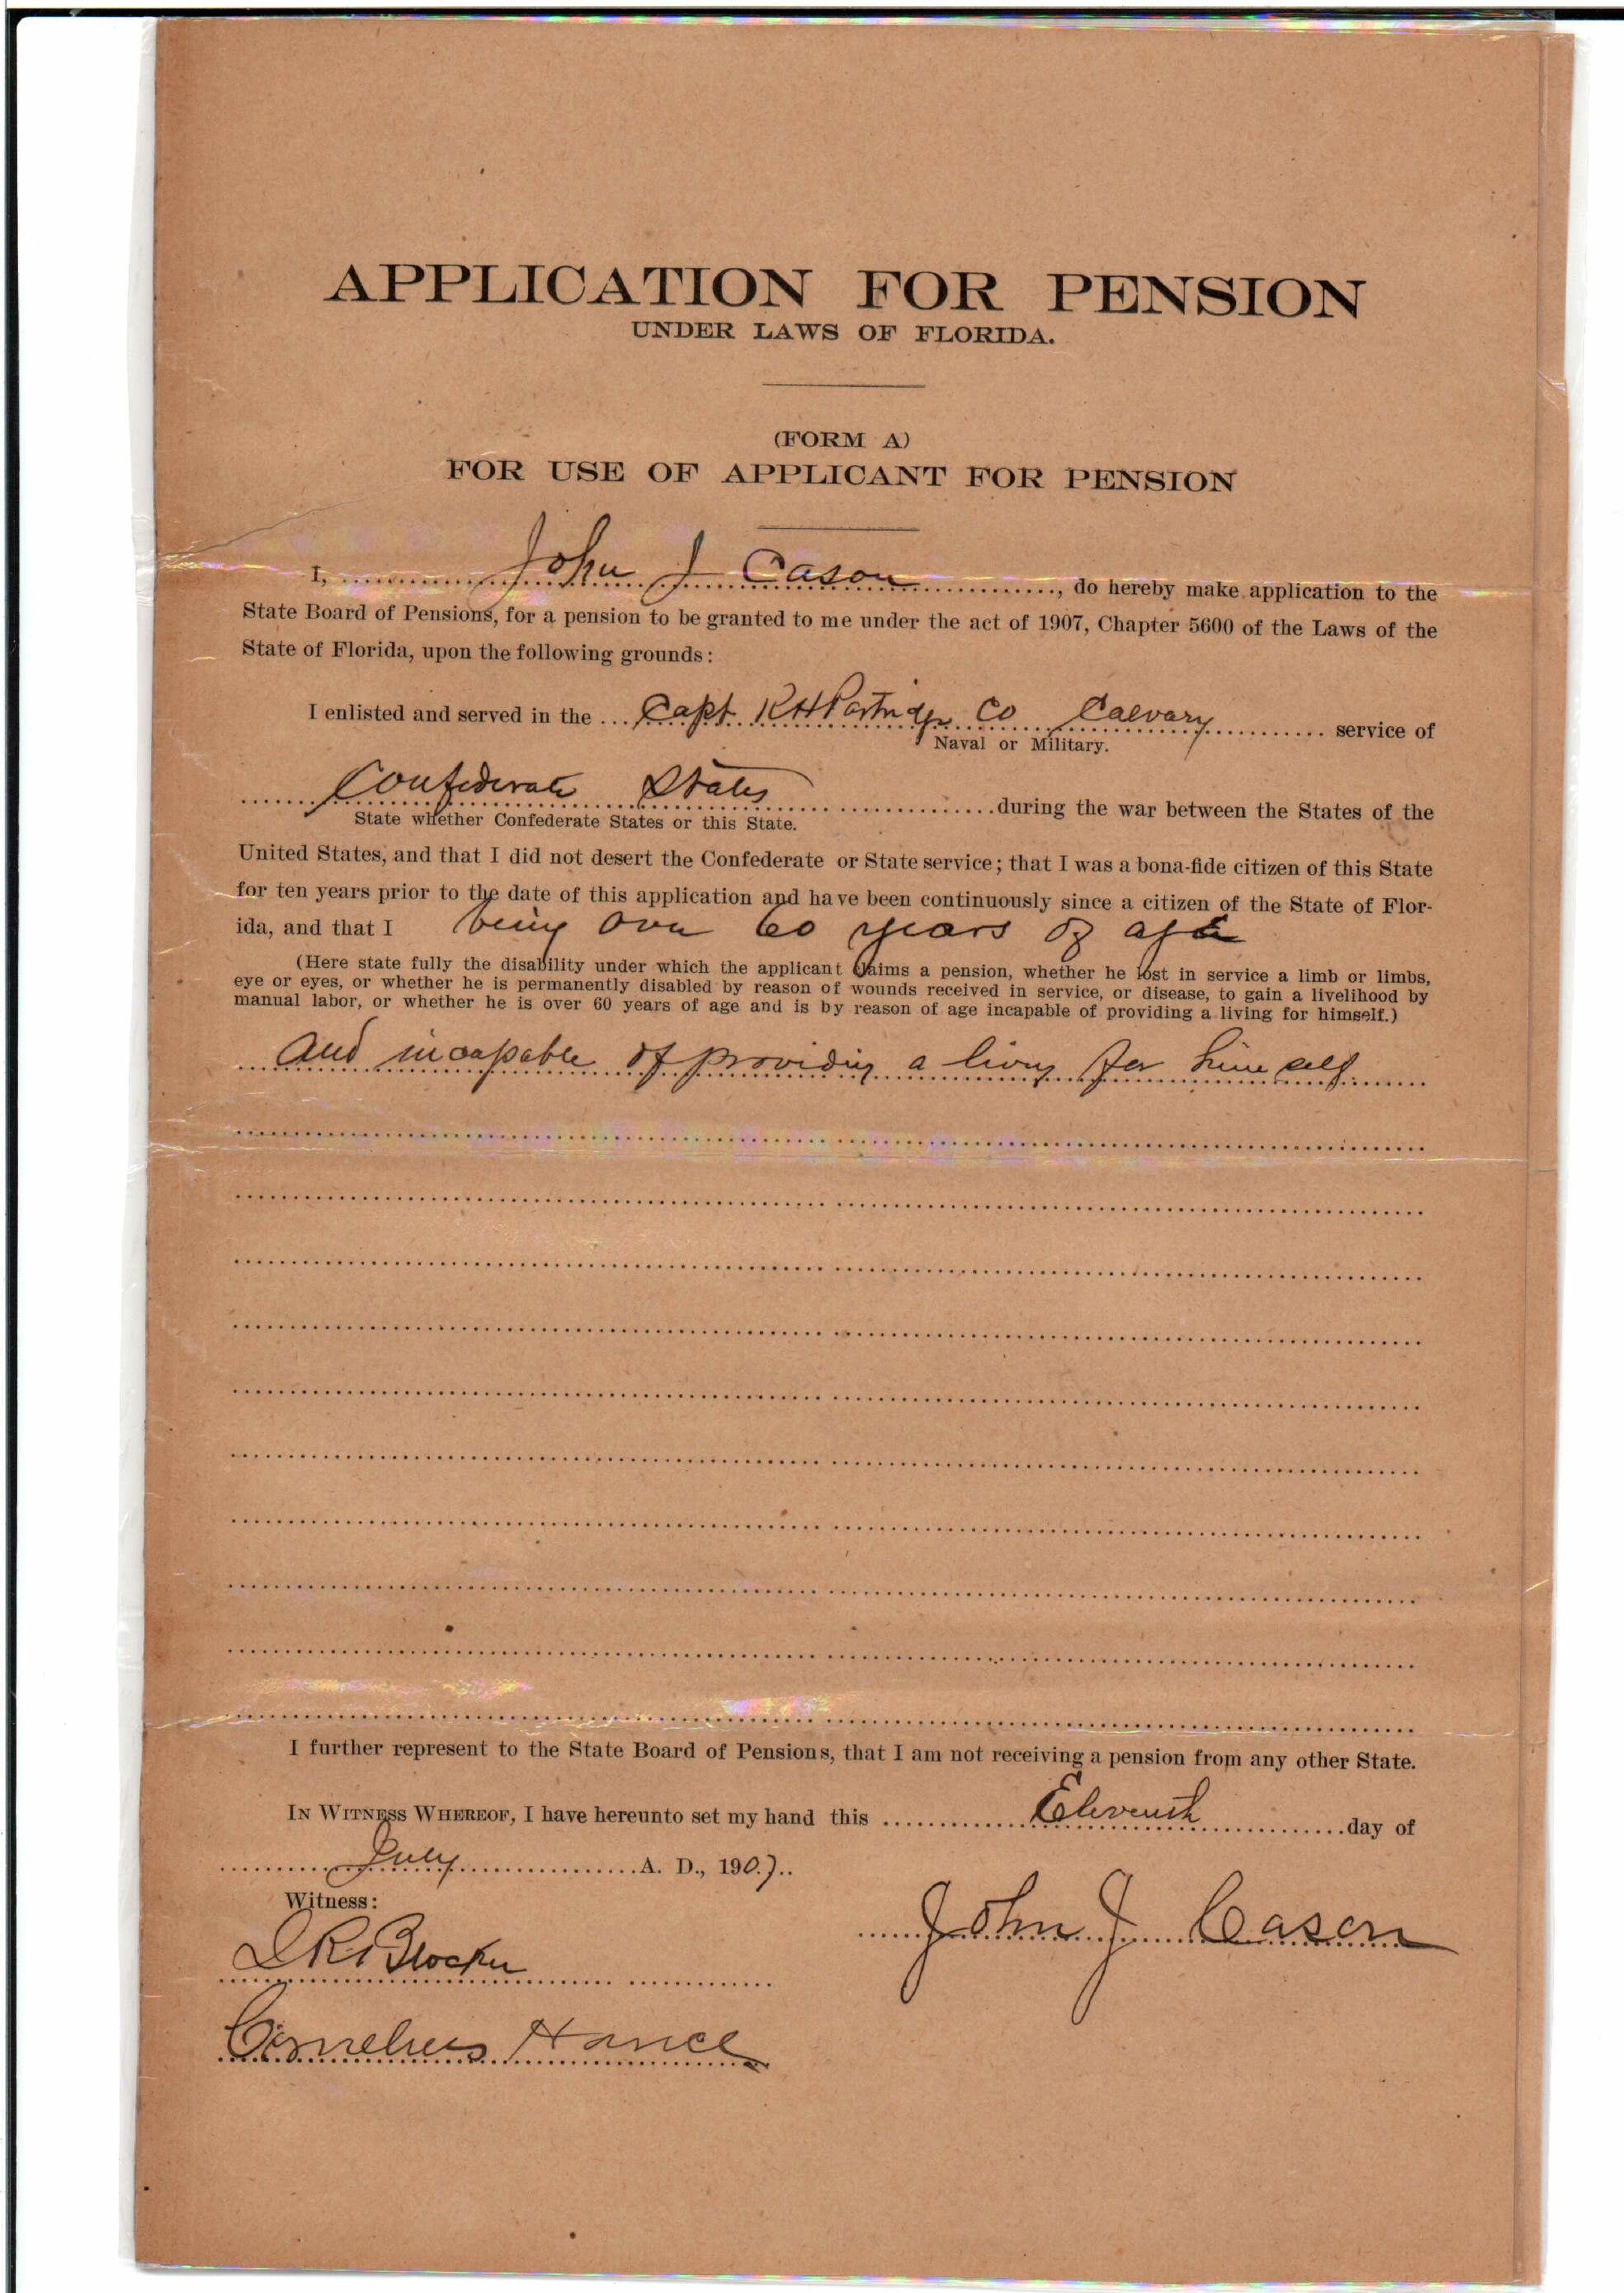 APPLICATION FOR PENSION
UNDER LAWS OF FLORIDA.
(FORM A)
FOR USE OF APPLICANT FOR PENSION
I, John J Cason, do hereby make application to the
State Board of Pensions, for a pension to be granted to me under the act of 1907, Chapter 5600 of the Laws of the
State of Florida, upon the following grounds:
I enlisted and served in the Capt. R H Partridge Co Calvary service of
Naval or Military.
Confederate States during the war between the States of the
State whether Confederate States or this State.
United States, and that I did not desert the Confederate or State service; that I was a bona-fide citizen of this State
for ten years prior to the date of this application and have been continuously since a citizen of the State of Flor-
ida, and that I being over 60 years of age
(Here state fully the disability under which the applicant claims a pension, whether he lost in service a limb or limbs,
eye or eyes, or whether he is permanently disabled by reason of wounds received in service, or disease, to gain a livelihood by
manual labor, or whether he is over 60 years of age and is by reason of age incapable of providing a living for himself.)
and incapable of providing a living for him self
I further represent to the State Board of Pensions, that I am not receiving a pension from any other State.
IN WITNESS WHEREOF, I have hereunto set my hand this Eleventh day of
July A. D., 1907.
Witness:
John J Cason
Blocker
Cornelius Hance